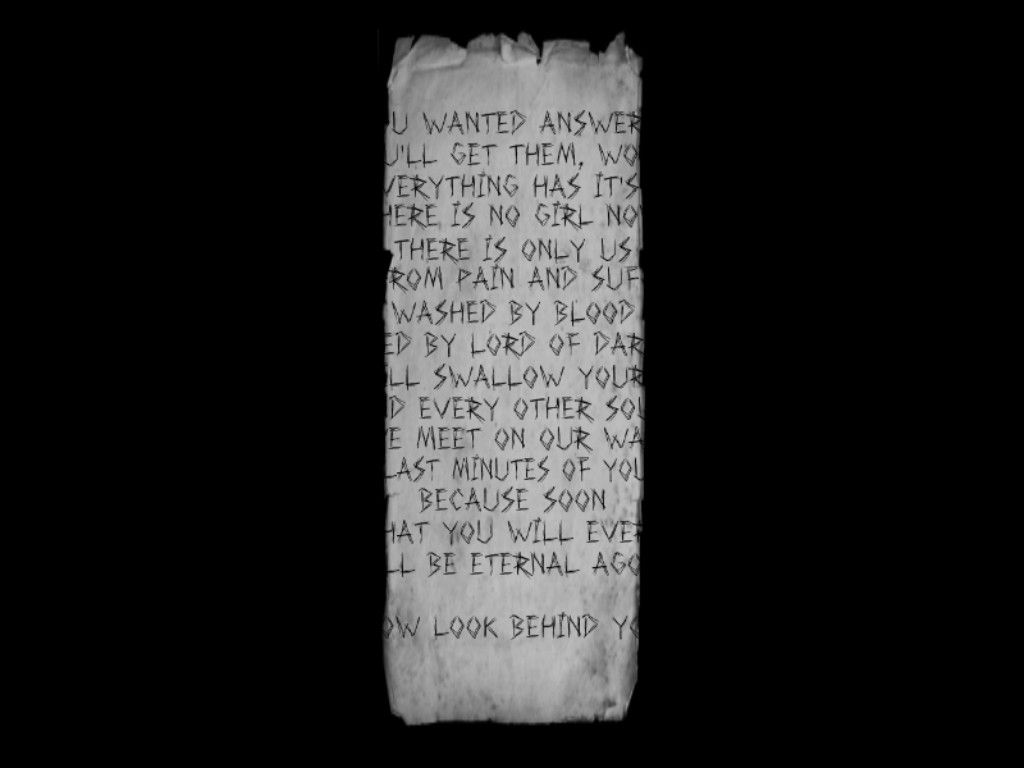 U WANTED ANSWER
U'LL GET THEM, WO
VERYTHING HAS IT'S
HERE IS NO GIRL NO
THERE IS ONLY US
ROM PAIN AND SUF
WASHED BY BLOOD
ED BY LORD OF DAR
LL SWALLOW YOUR
D EVERY OTHER SOU
E MEET ON OUR WA
LAST MINUTES OF YOU
BECAUSE SOON
HAT YOU WILL EVER
LL BE ETERNAL AGO
OW LOOK BEHIND YO